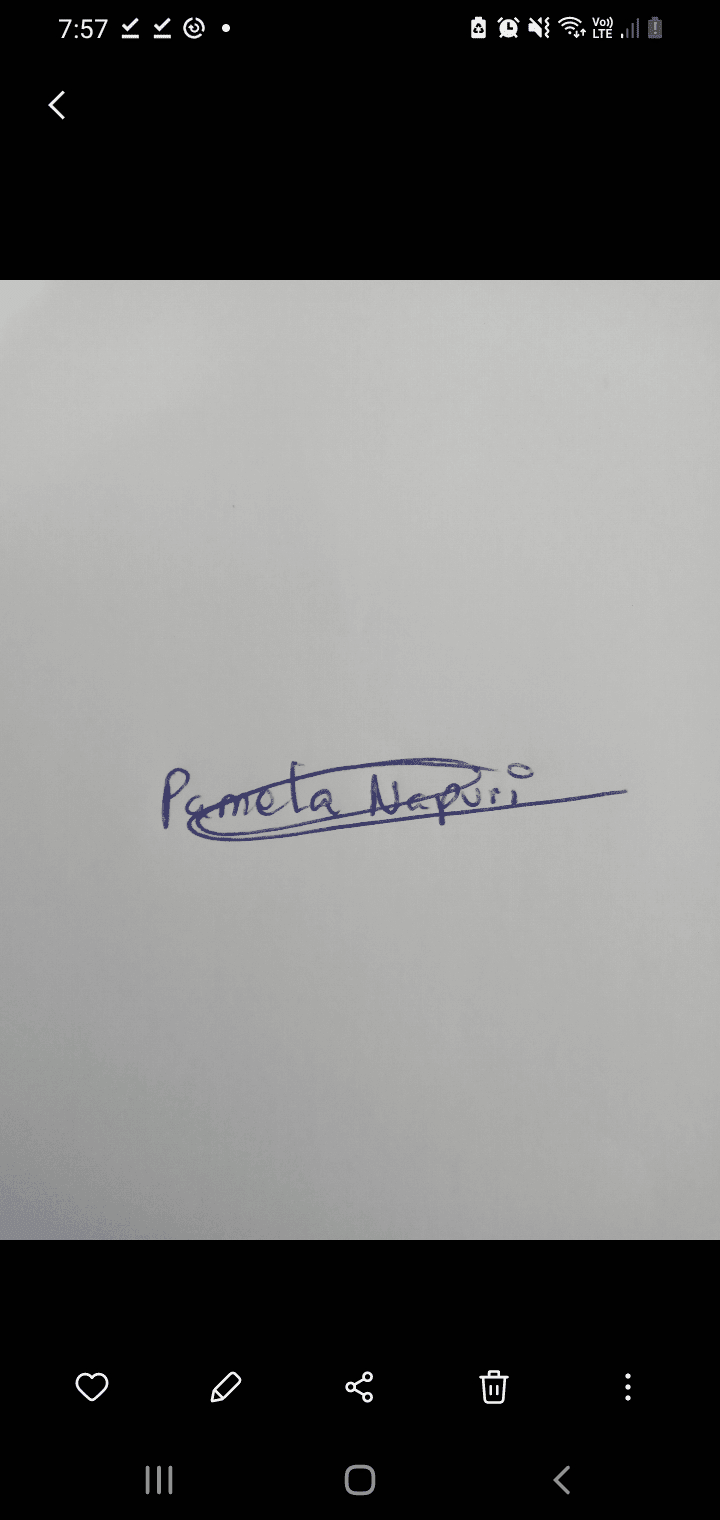 7:57 Vo)) LTE
Pamela Napuri